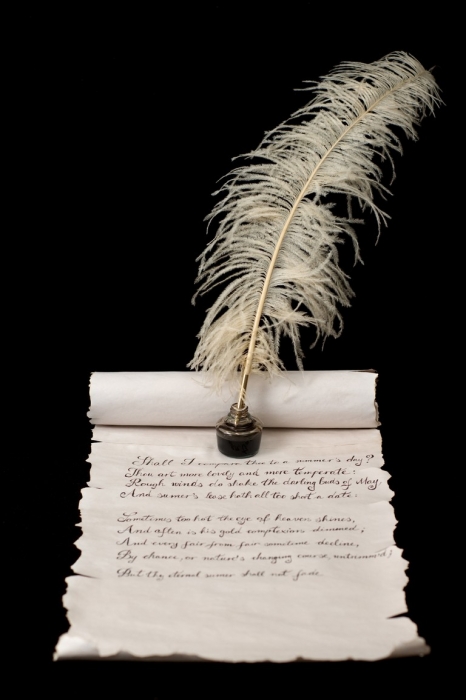 Shall I compare thee to a summer's day?
Thou art more lovely and more temperate:
Rough winds do shake the darling buds of May,
And sumer's lease hath all too shot a date:
Sometimes too hot the eye of heaven shines,
And often is his gold complexion dimmed;
And every fair from fair sometime declines,
By chance, or nature's changing course, untrimmed;
But thy eternal sumer shall not fade